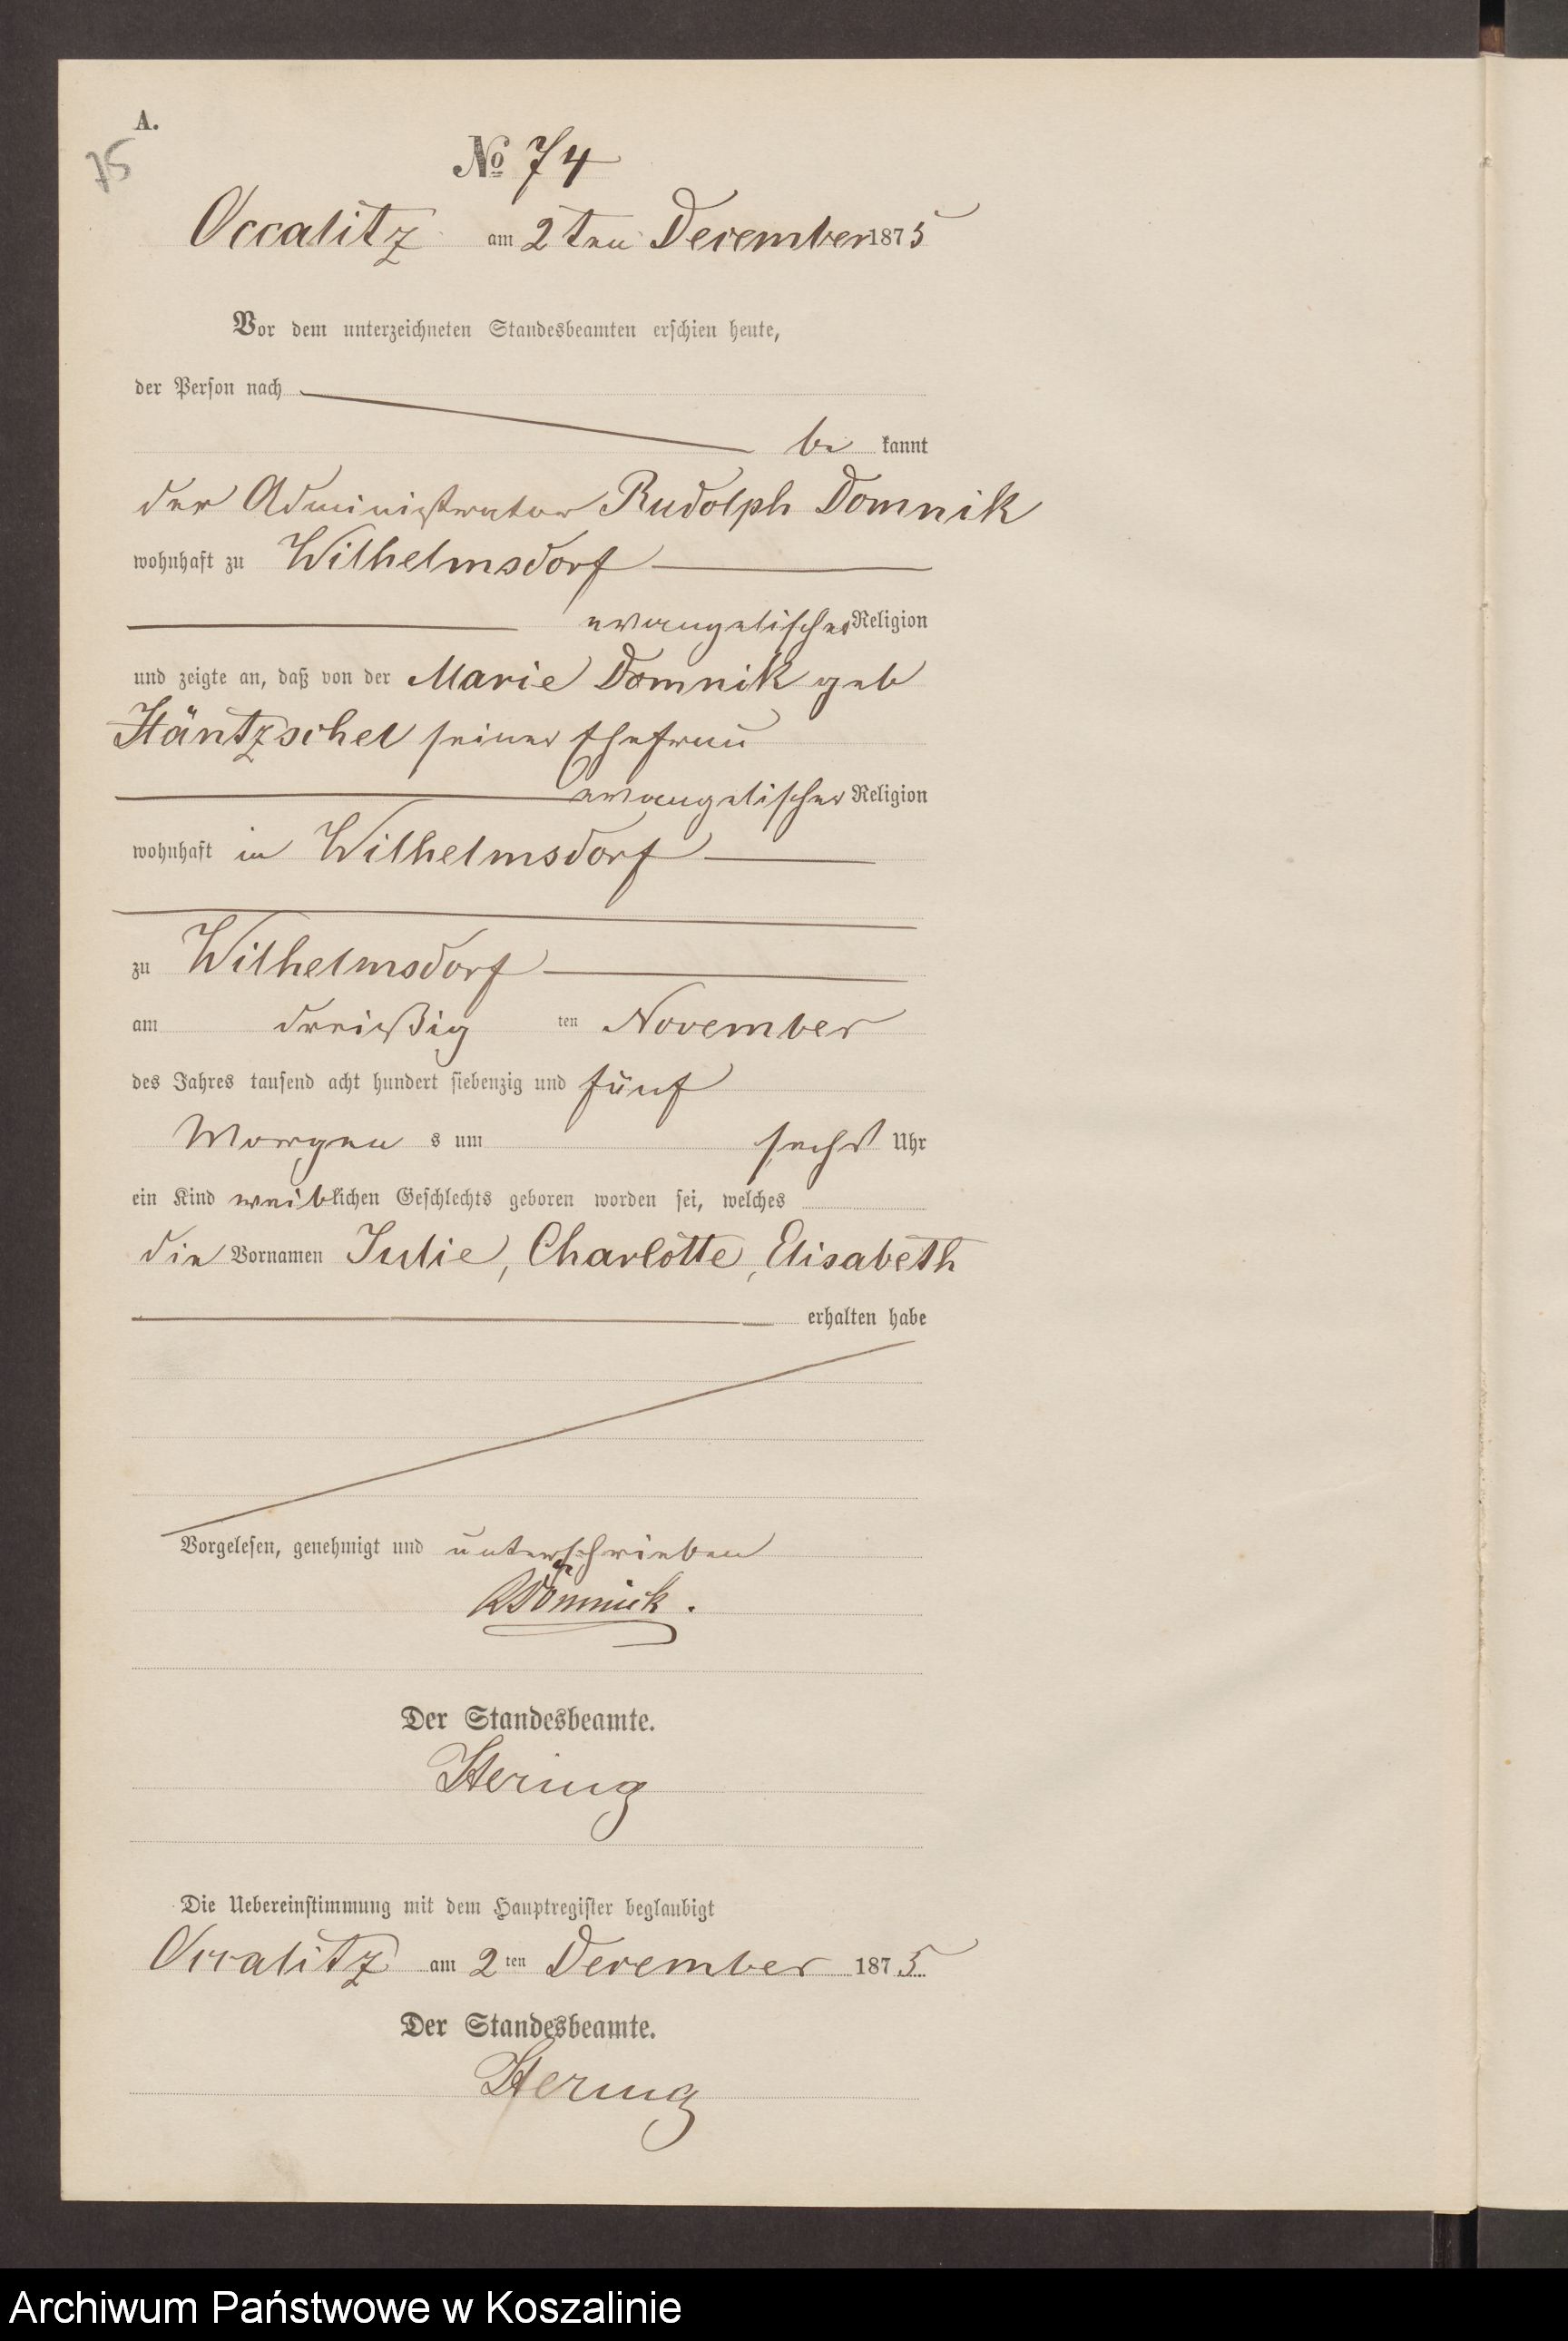 A.
75
No 74
Occalitz am 2ten December 1875
Vor dem unterzeichneten Standesbeamten erschien heute,
der Person nach
be kannt
der Administrator Rudolph Domnik
wohnhaft zu Wilhelmsdorf
evangelischer Religion
und zeigte an, daß von der Marie Domnik geb
Häntzschel seiner Ehefrau
evangelischer Religion
wohnhaft in Wilhelmsdorf
zu Wilhelmsdorf
am dreißig ten November
des Jahres tausend acht hundert siebenzig und fünf
Morgen s um sechs Uhr
ein Kind weiblichen Geschlechts geboren worden sei, welches
die Vornamen Julie, Charlotte, Elisabeth
erhalten habe
Vorgelesen, genehmigt und unterschrieben
RDomnick.
Der Standesbeamte.
Hering
Die Uebereinstimmung mit dem Hauptregister beglaubigt
Occalitz am 2ten December 1875.
Der Standesbeamte.
Hering
Archiwum Państwowe w Koszalinie